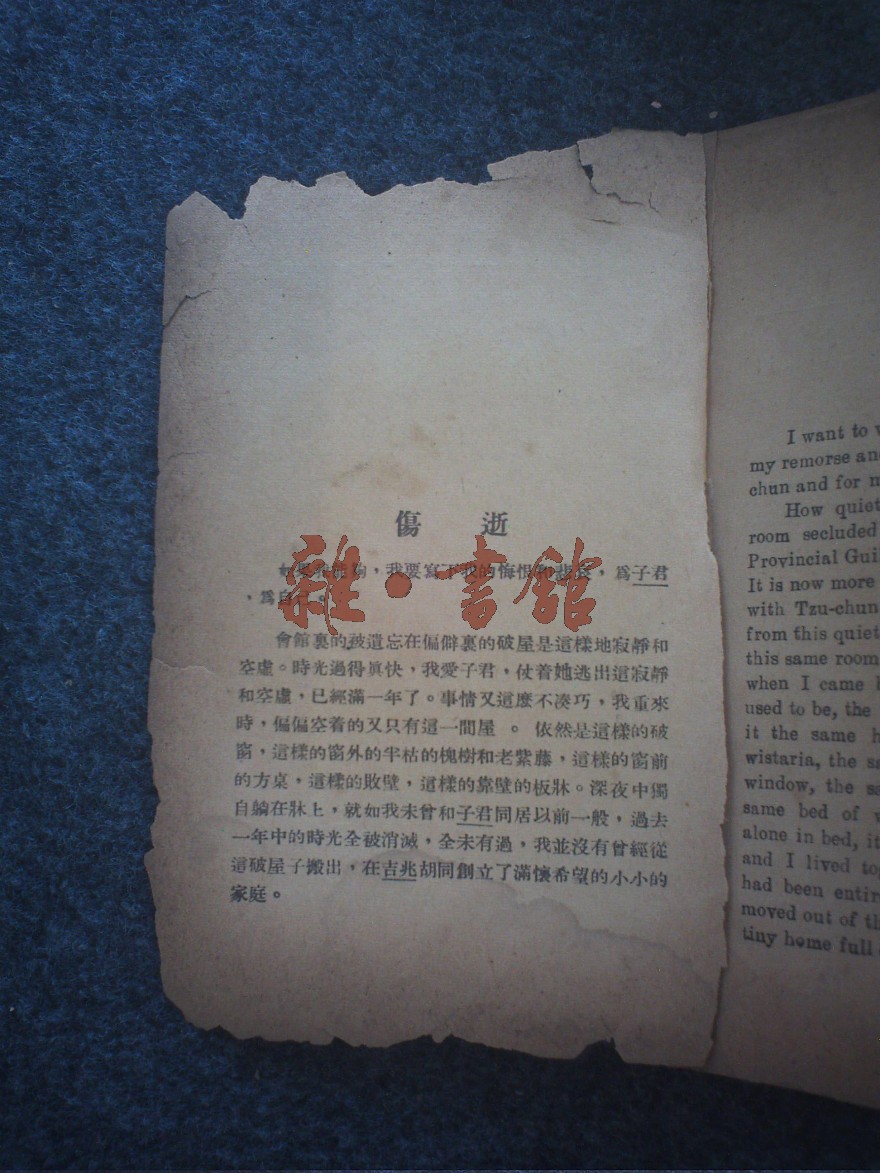 傷逝
如果我能夠，我要寫下我的悔恨和悲哀，爲子君
，爲自己。
會館裏的被遺忘在偏僻裏的破屋是這樣地寂靜和
空虛。時光過得眞快，我愛子君，仗着她逃出這寂靜
和空虛，已經滿一年了。事情又這麼不湊巧，我重來
時，偏偏空着的又只有這一間屋。依然是這樣的破
窗，這樣的窗外的半枯的槐樹和老紫藤，這樣的窗前
的方桌，這樣的敗壁，這樣的靠壁的板牀。深夜中獨
自躺在牀上，就如我未曾和子君同居以前一般，過去
一年中的時光全被消滅，全未有過，我並沒有曾經從
這破屋子搬出，在吉兆胡同創立了滿懷希望的小小的
家庭。
雜·書館
I want to
my remorse and
chun and for
How quiet
room secluded
Provincial
It is now more
with Tzu-chun
from this quiet
this same room
when I came
used to be, the
it the same
wistaria, the
window, the
same bed of
alone in bed, it
and I lived
had been
moved out of
tiny home full